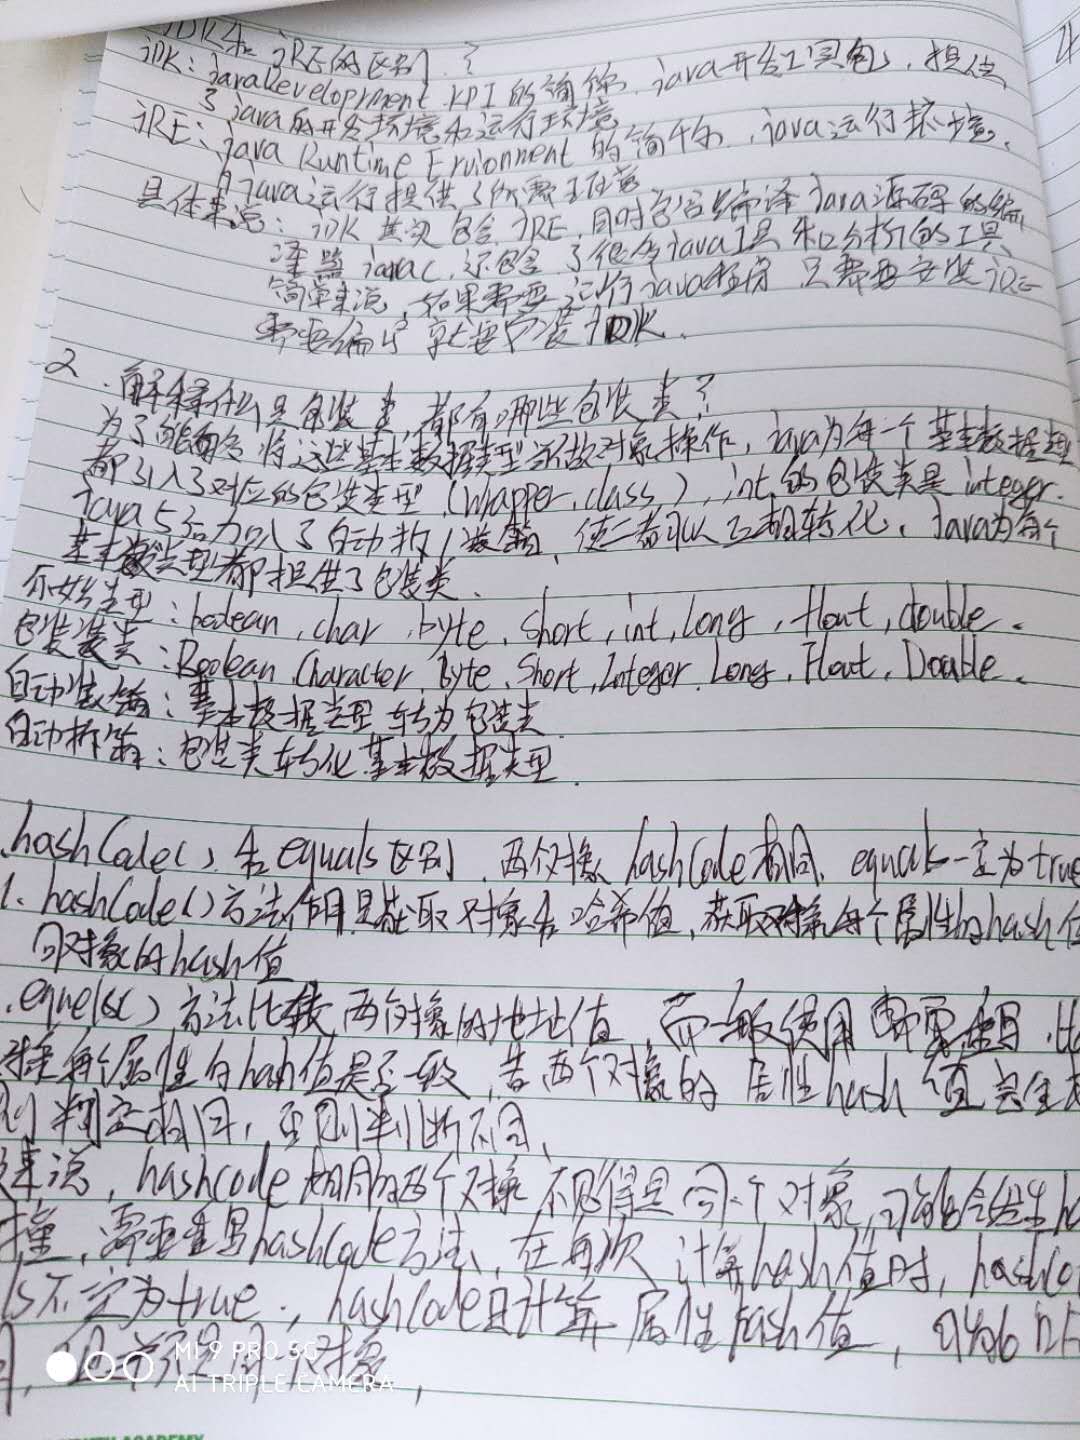 JDK和JRE的区别？
JDK：java Development KPI的简称，java开发工具包，提供
了java的开发环境和运行环境
JRE：java Runtime Ervionment的简称，java运行环境，
为java运行提供了所需环境
具体来说：JDK其实包含JRE，同时包含编译Java源码的编
译器javac，还包含了很多java工具和分析的工具
简单来说，如果需要运行java程序 只需要安装JRE
需要编写就要安装JDK.
2.解释什么是包装类，都有哪些包装类？
为了能够将这些基本数据类型当做对象操作，java为每一个基本数据类型
都引入了对应的包装类型（wrapper class），int的包装类是integer.
Java5后加入了自动拆/装箱，使二者可以互相转化，Java为每个
基本数据类型都提供了包装类.
原始类型：boolean，char，byte、Short，int，Long，flout，double.
包装类：Boolean，Character，Byte、Short，Integer，Long，Flout，Double.
自动装箱：基本数据类型转为包装类
自动拆箱：包装类转化基本数据类型.
hashCode()和equals区别，两个对象hashCode相同，equals一定为true
1.hashCode()方法作用是获取对象名哈希值，获取对象每个属性的hash
对象的hash值
equels()方法比较两个对象的地址值，而一般使用都需重写，
每个属性的hash值是否一致，若两个对象的属性hash值完全
则判定相同，否则判断不同，
来说，hashcode相同的两个对象不见得是同一个对象，可能会发生ha
撞，需要重写hashCode方法，在每次计算hash值时，hashCo
ls不一定为true，hashCode只计算属性hash值，
对象，
MI 9 PRO 5G
AI TRIPLE CAMERA
ACADEMY